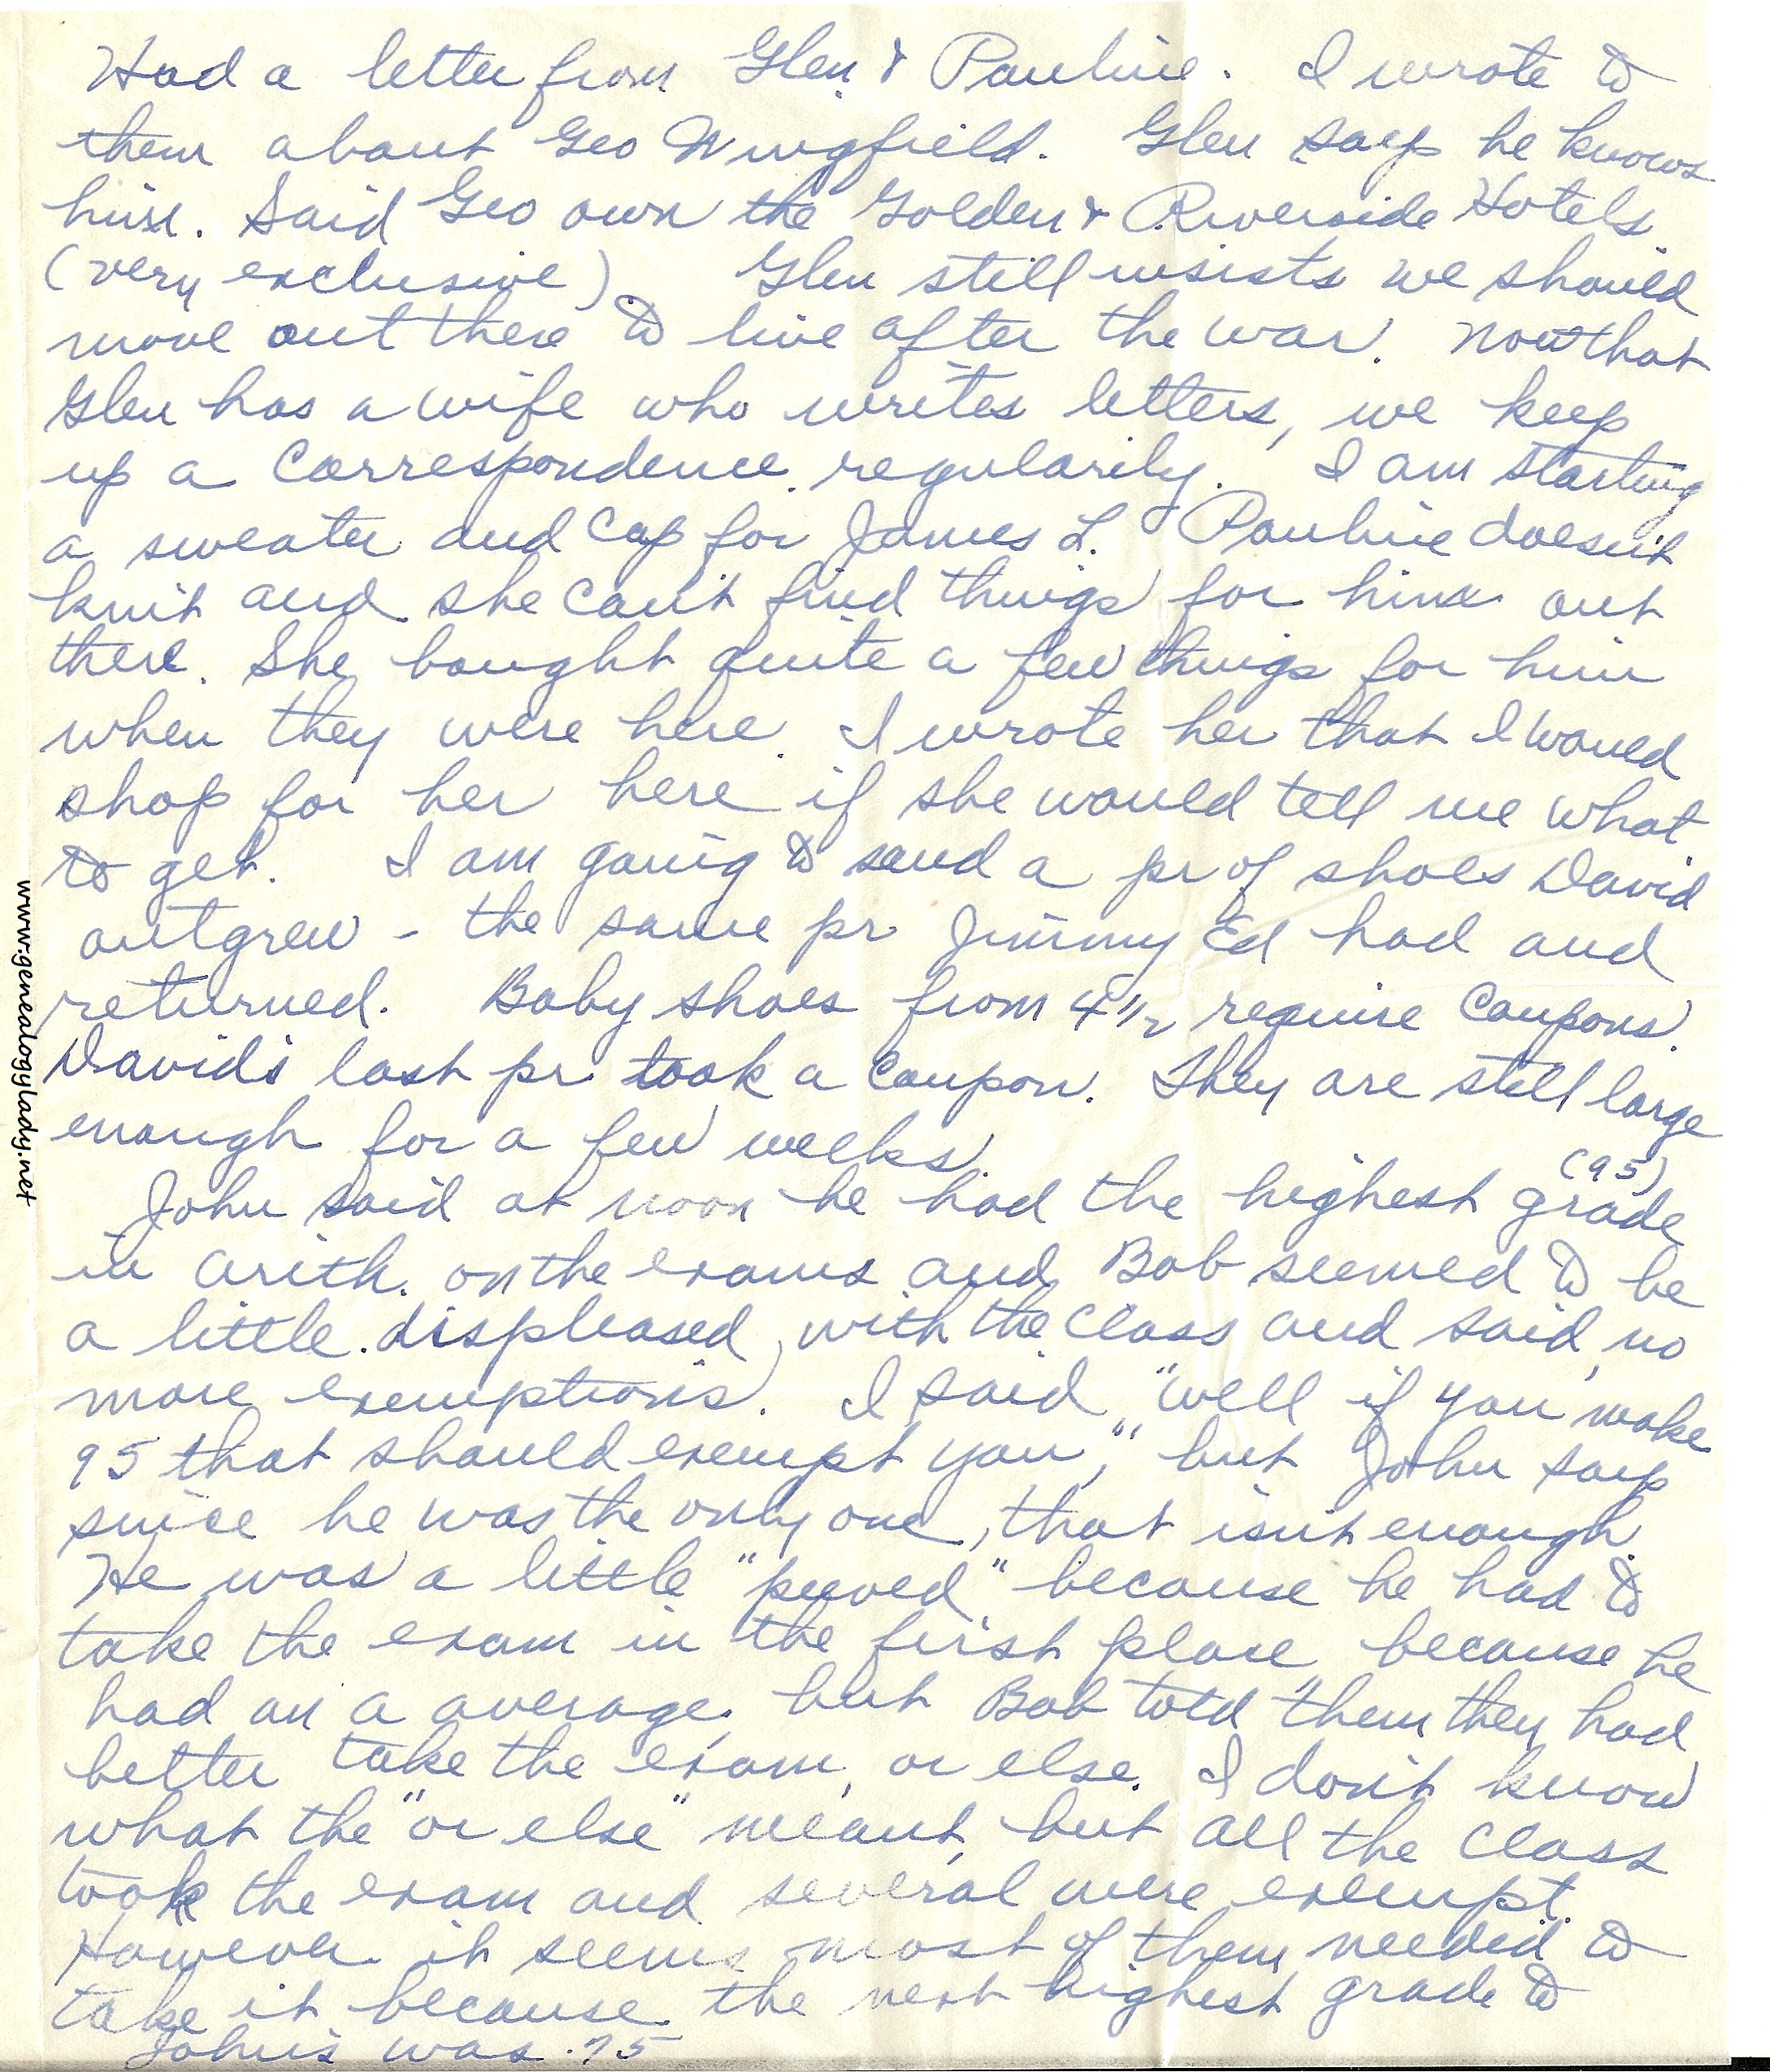 Had a letter from Glen & Pauline. I wrote to
them about Geo Wingfield. Glen says he knows
him. Said Geo own the Golden & Riverside Hotels.
(very exclusive). Glen still insists we should
move out there to live after the war. Now that
Glen has a wife who writes letters, we keep
up a correspondence regularily. I am starting
a sweater and cap for James L. Pauline doesn't
knit and she can't find things for him out
there. She bought quite a few things for him
when they were here. I wrote her that I would
shop for her here if she would tell me what
to get. I am going to send a pr of shoes David
outgrew - the same pr Jimmy Ed had and
returned. Baby shoes from 4 1/2 require coupons.
David's last pr took a coupon. They are still large
enough for a few weeks.
John said at noon he had the highest grade (95)
in arith. on the exams and Bob seemed to be
a little displeased with the class and said, no
more exemptions. I said "well if you make
95 that should exempt you," but John says
since he was the only one, that isn't enough.
He was a little "peeved" because he had to
take the exam in the first place because he
had an a average, but Bob told them they had
better take the exam, or else. I don't know
what the "or else" meant, but all the class
took the exam and several were exempt.
However it seems most of them needed to
take it because the next highest grade to
John's was 75
www.genealogylady.net